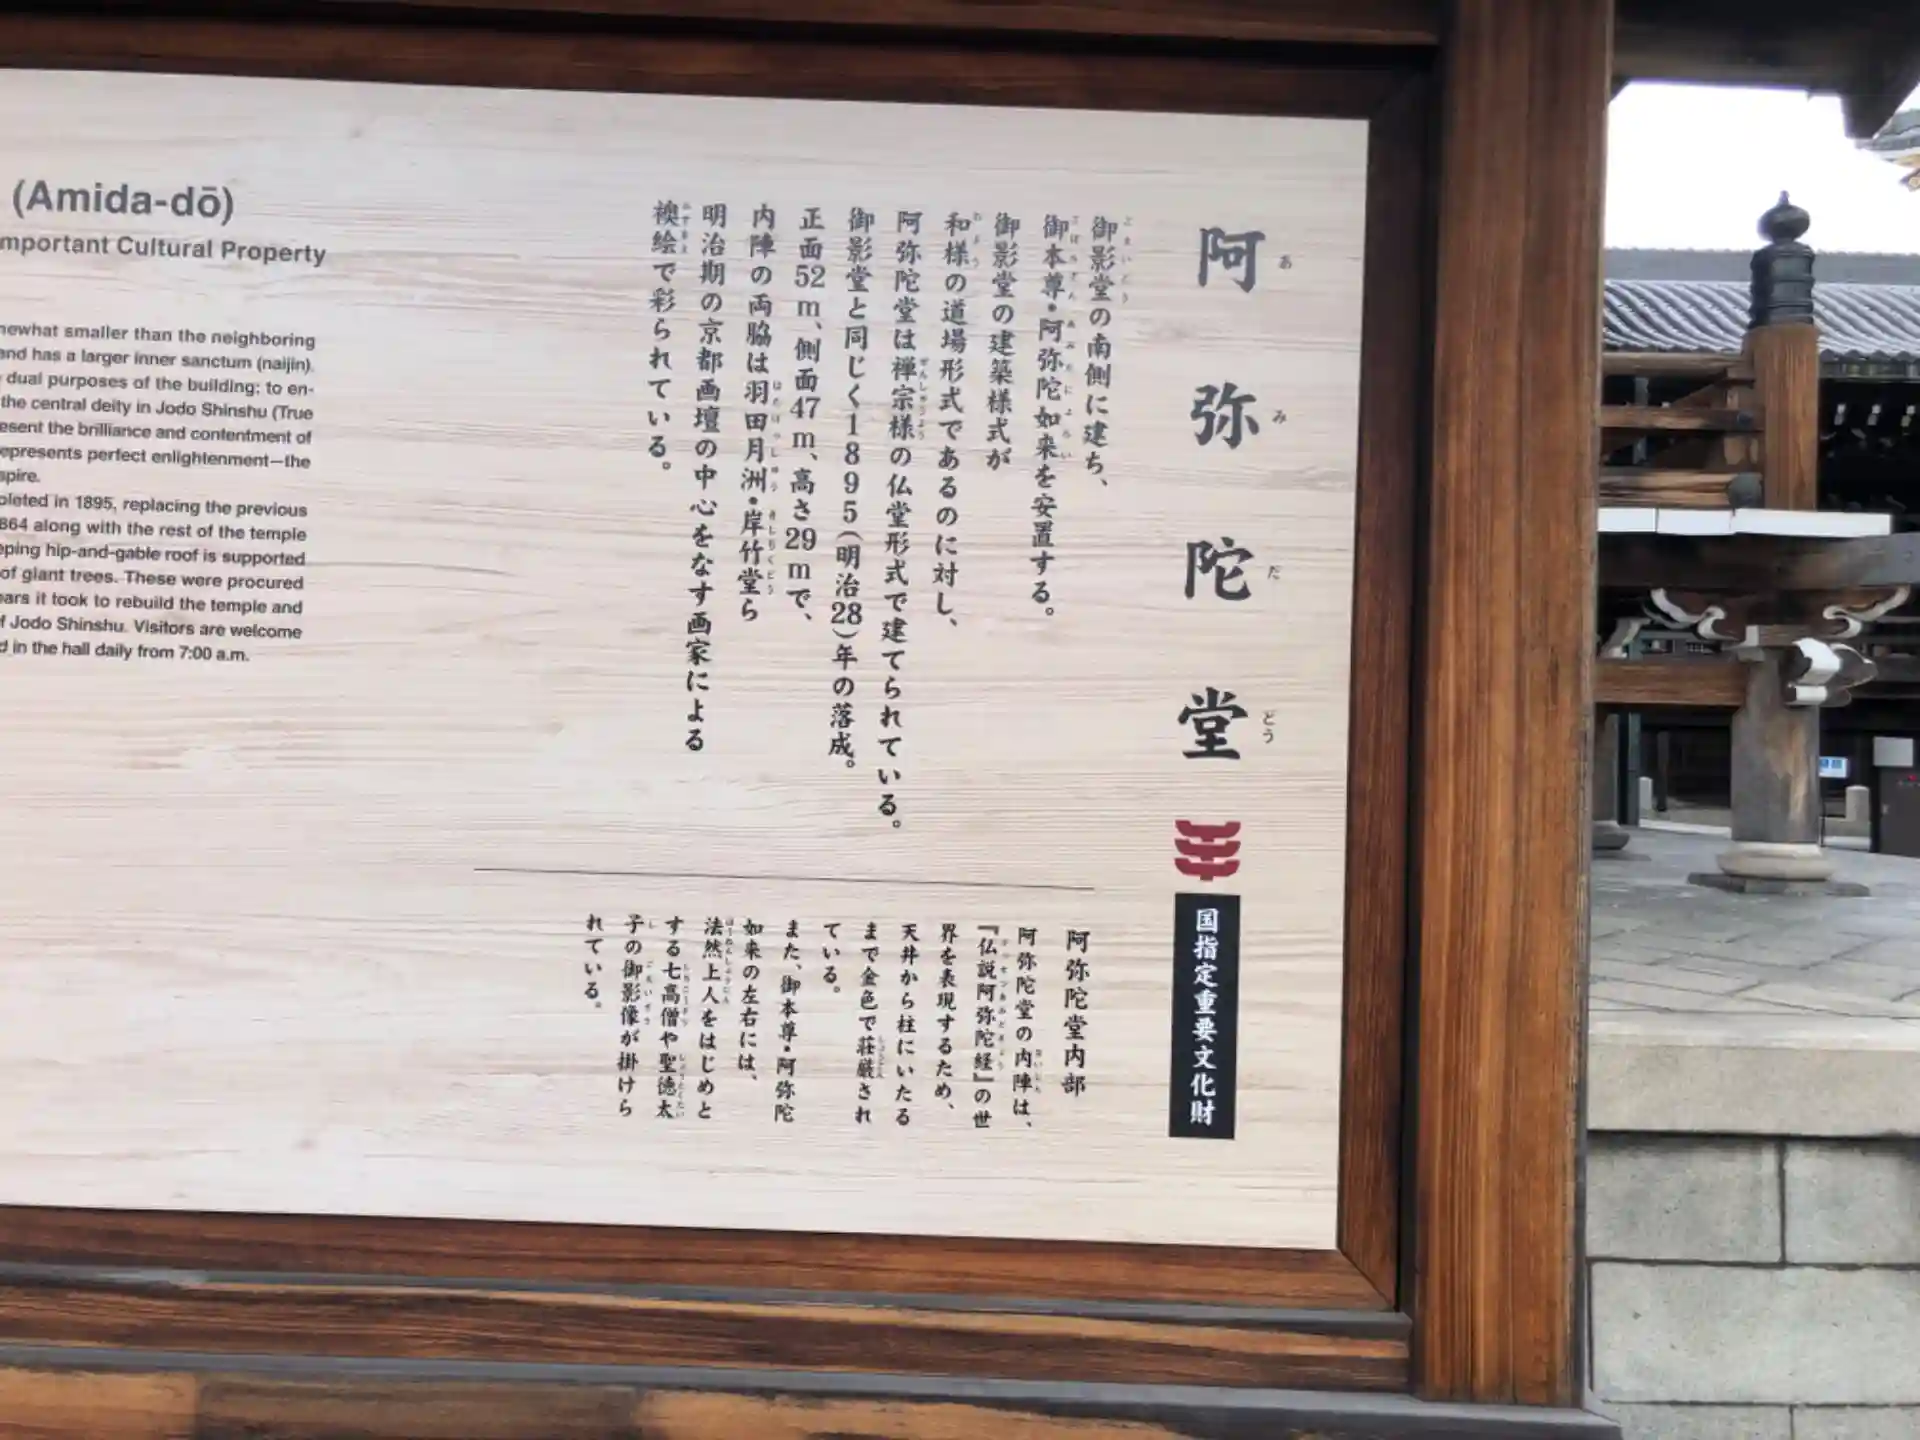 阿弥陀堂
国指定重要文化財
御影堂の南側に建ち、
御本尊・阿弥陀如来を安置する。
御影堂の建築様式が
和様の道場形式であるのに対し、
阿弥陀堂は禅宗様の仏堂形式で建てられている。
御影堂と同じく1895(明治28)年の落成。
正面52m、側面47m、高さ29mで、
内陣の両脇は羽田月洲・岸竹堂ら
明治期の京都画壇の中心をなす画家による
襖絵で彩られている。
阿弥陀堂内部
阿弥陀堂の内陣は、
『仏説阿弥陀経』の世
界を表現するため、
天井から柱にいたる
まで金色で荘厳され
ている。
また、御本尊・阿弥陀
如来の左右には、
法然上人をはじめと
する七高僧や聖徳太
子の御影像が掛けら
れている。
(Amida-dō)
mportant Cultural Property
newhat smaller than the neighboring
and has a larger inner sanctum (naijin).
dual purposes of the building: to en-
the central deity in Jodo Shinshu (True
esent the brilliance and contentment of
epresents perfect enlightenment—the
spire.
pleted in 1895, replacing the previous
864 along with the rest of the temple
eping hip-and-gable roof is supported
of giant trees. These were procured
ears it took to rebuild the temple and
f Jodo Shinshu. Visitors are welcome
d in the hall daily from 7:00 a.m.